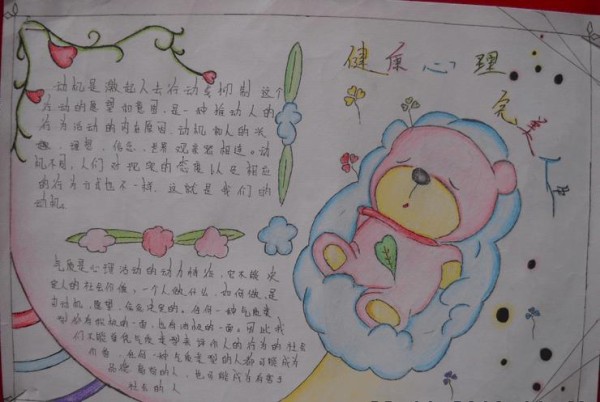 健康心理
完美人
动机是激起人去行动或抑制这个
行动的愿望和意图,是一种推动人的
行为活动的内在原因,动机和人的兴
趣、理想、信念、世界观紧紧相连。动
机不同,人们对现实的态度以及相应
的行为方式也不一样,这就是我们的
动机。
气质是心理活动的动力特征,它不能决
定人的社会价值,一个人做什么,如何做,是
由动机、愿望、信念决定的。任何一种气质类
型都有积极的一面,也有消极的一面,因此我
们不能用气质类型来评价人的行为的社会
价值,任何一种气质类型的人都可能成为
品德高尚的人,也可能成为有害于
社会的人